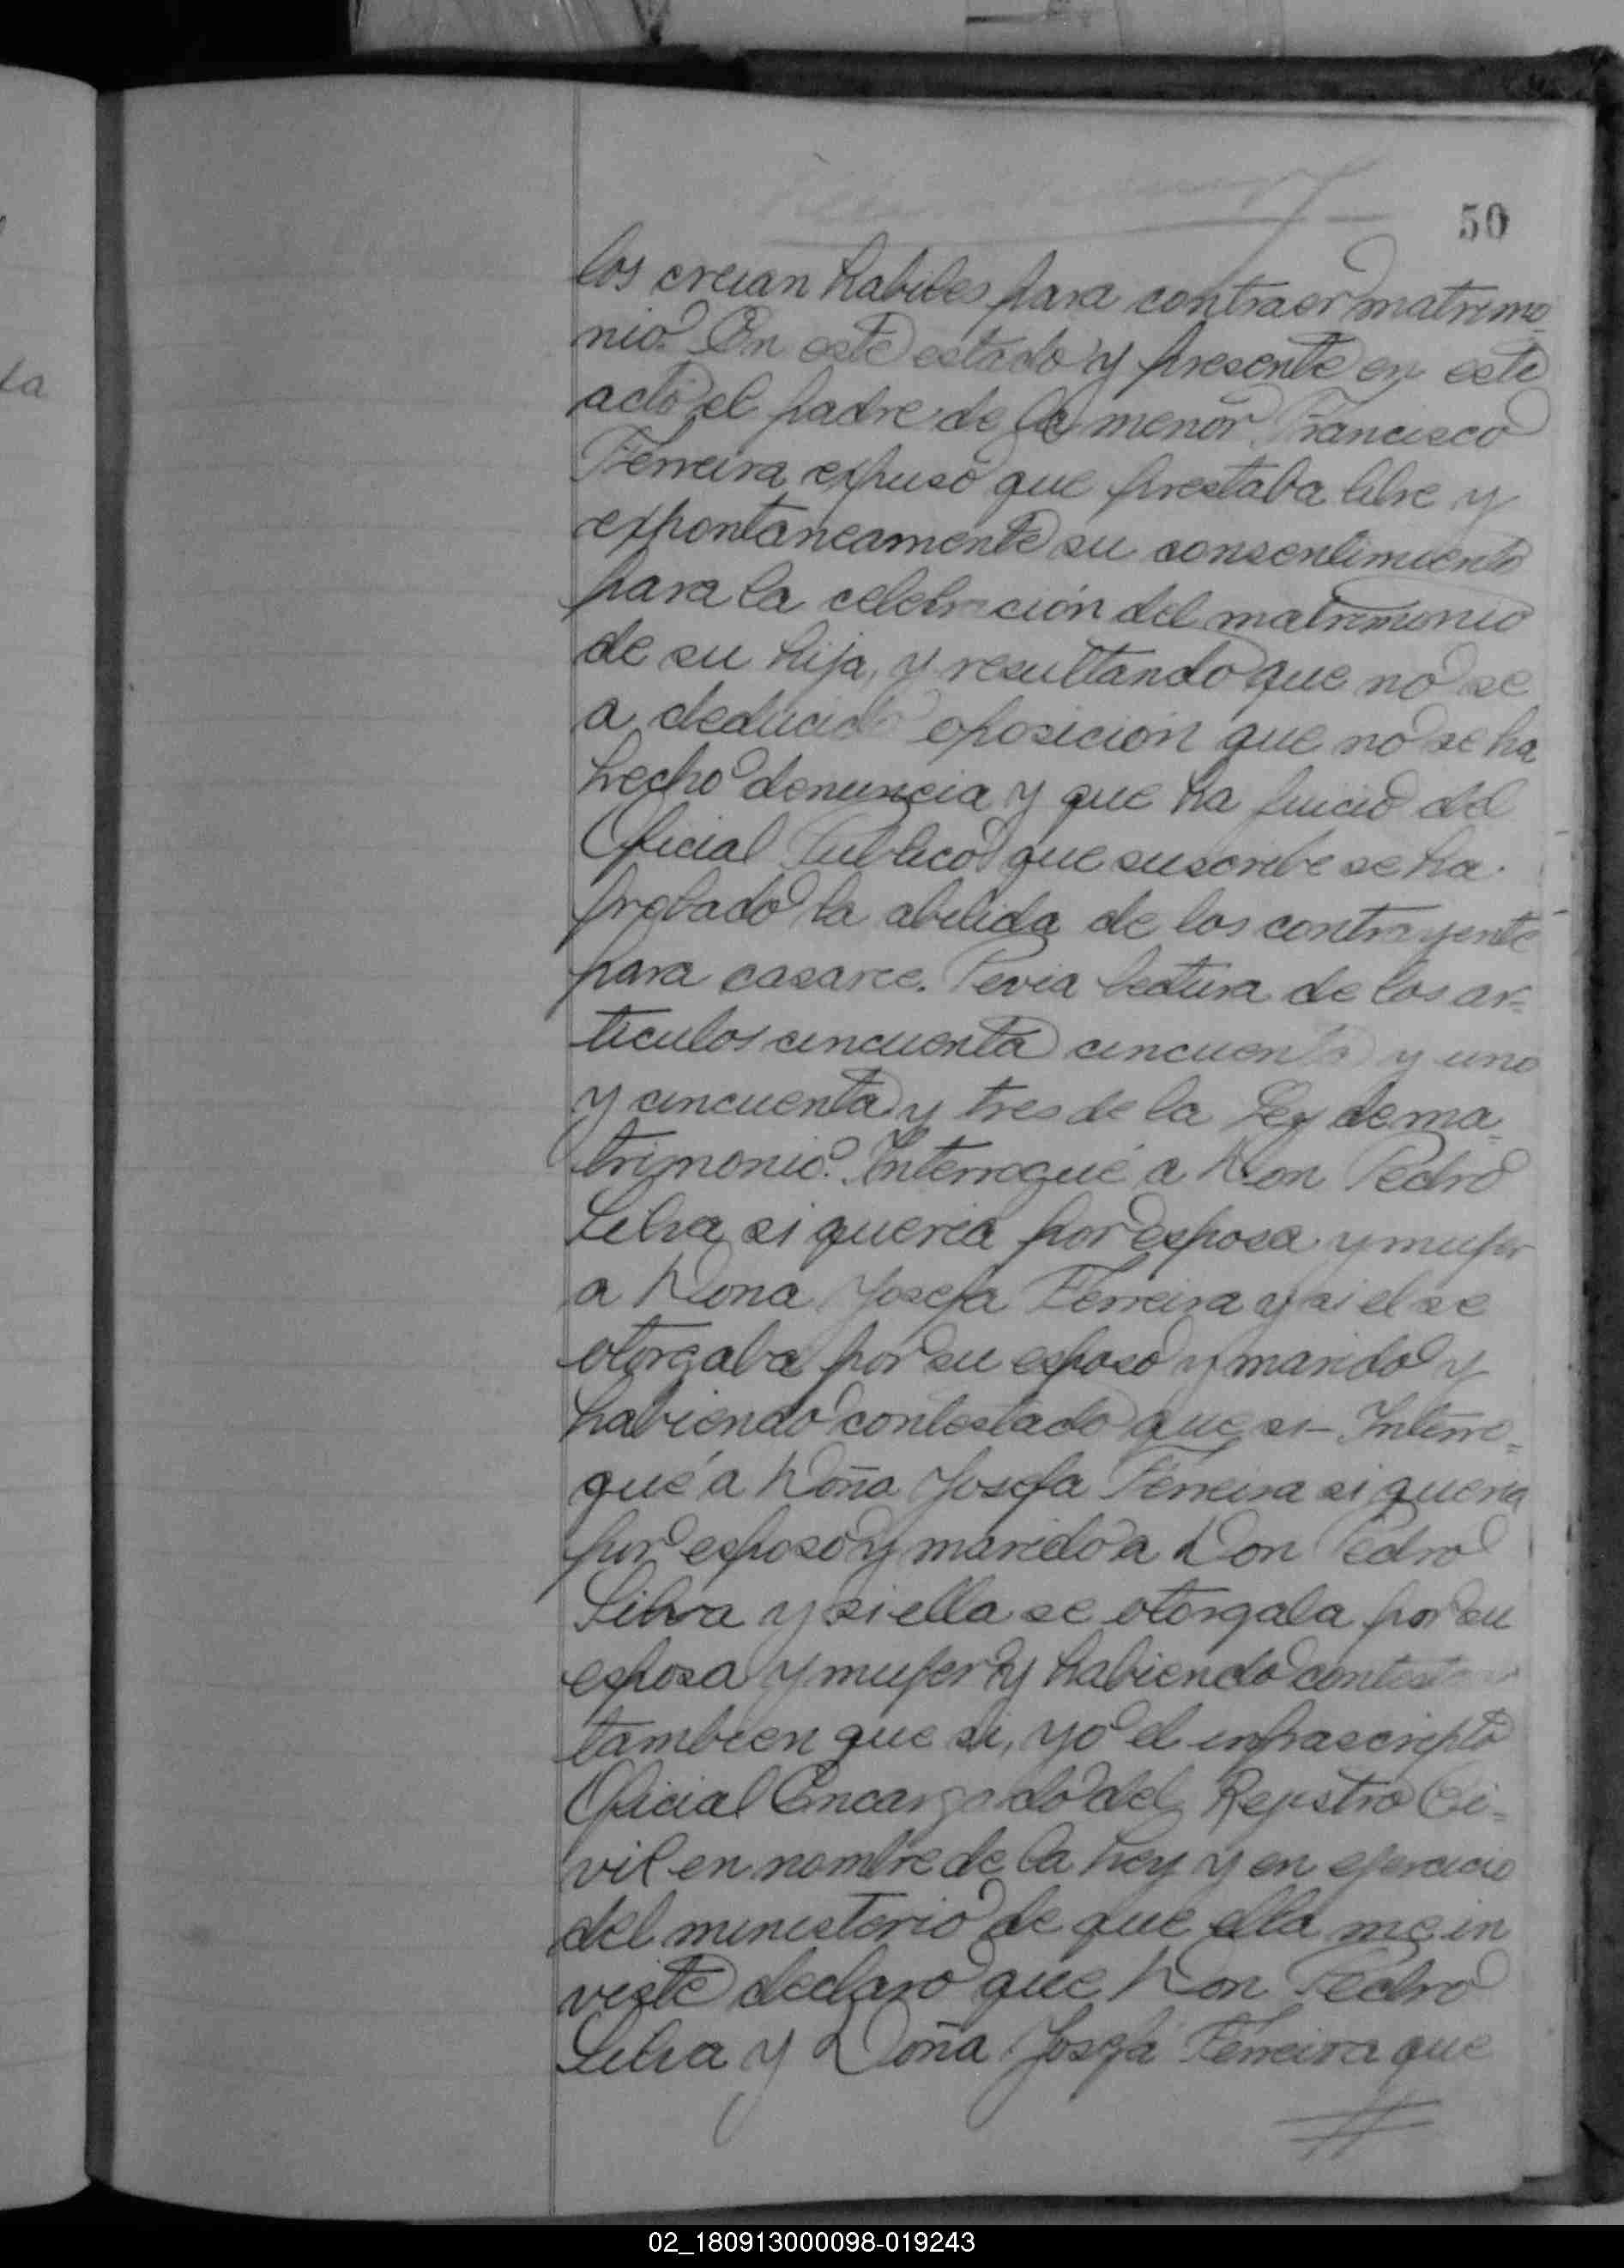 50
los creian habiles para contraer matrimo-
nio. En este estado y presente en este
acto el padre de la menor Francisco
Ferreira expuso que prestaba libre y
expontaneamente su consentimiento
para la celebración del matrimonio
de su hija, y resultando que no se
a deducido oposicion que no se ha
hecho denuncia y que ha juicio del
Oficial Publico que suscribe se ha
probado la abilida de los contrayente
para casarce. Previa lectura de los ar=
ticulos cincuenta cincuenta y uno
y cincuenta y tres de la Ley de ma-
trimonio. Interrogué a Don Pedro
Silva si queria por esposa y mujer
a Dona Josefa Ferreira y si el se
otorgaba por su esposo y marido y
habiendo contestado que si - Interro=
gué a Doña Josefa Ferreira si queria
por esposo y marido a Don Pedro
Silva y si ella se otorgaba por su
esposa y mujer y habiendo contestado
tambien que si, yo el infrascripto
Oficial Encargado del Rejistro Ci=
vil en nombre de la Ley y en ejercicio
del ministerio de que ella me in
viste declaro que Don Pedro
Silva y Doña Josefa Ferreira que
ta
02_180913000098-019243